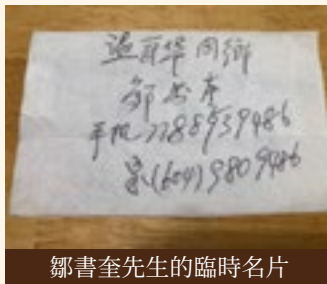 温哥华同鄉
邹书奎
手机7788939486
家(604)9809486
鄒書奎先生的臨時名片